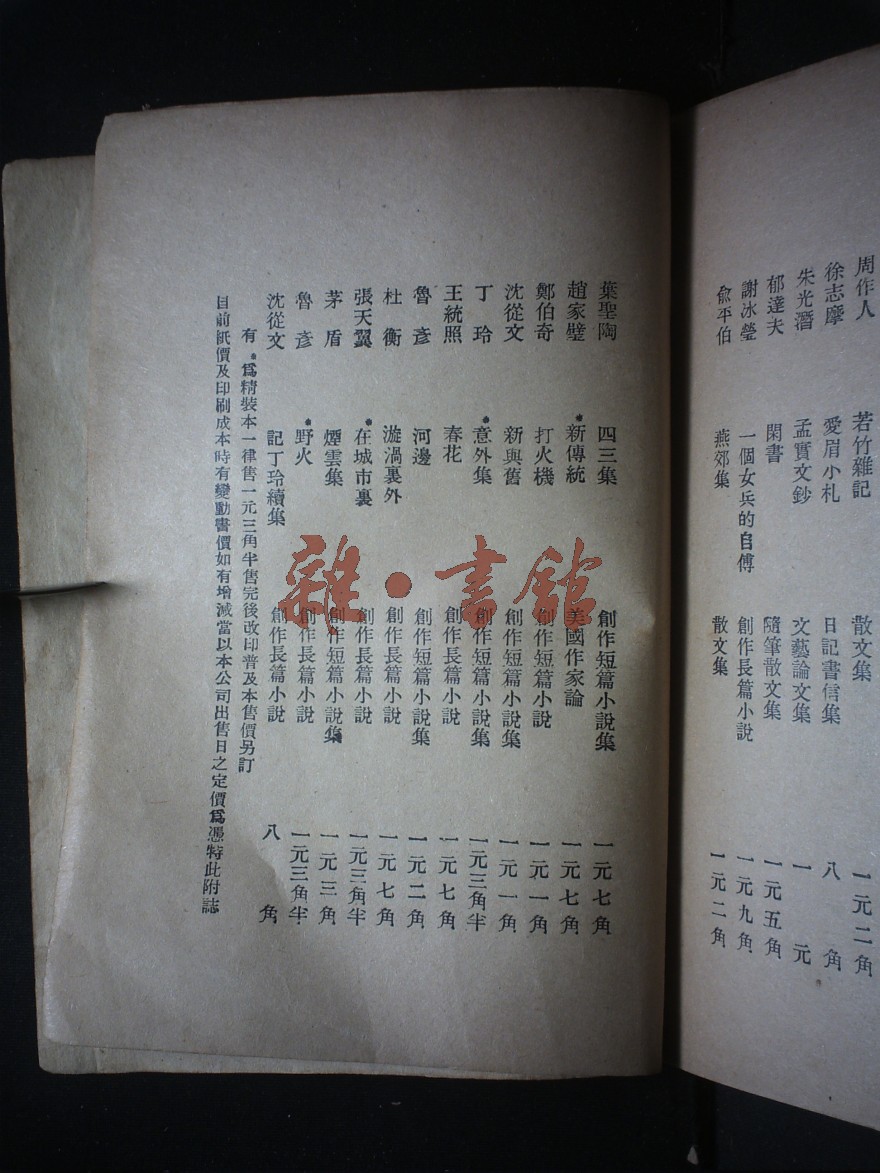 周作人 苦竹雜記 散文集 一元二角
徐志摩 愛眉小札 日記書信集 八角
朱光潛 孟實文鈔 文藝論文集 一元
郁達夫 閑書 隨筆散文集 一元五角
謝冰瑩 一個女兵的自傳 創作長篇小說 一元九角
俞平伯 燕郊集 散文集 一元二角
葉聖陶 四三集 創作短篇小說集 一元七角
趙家璧 •新傳統 美國作家論 一元七角
鄭伯奇 打火機 創作短篇小說 一元一角
沈從文 新與舊 創作短篇小說集 一元一角
丁玲 •意外集 創作短篇小說集 一元三角半
王統照 春花 創作長篇小說 一元七角
魯彥 河邊 創作短篇小說集 一元二角
杜衡 漩渦裏外 創作長篇小說 一元七角
張天翼 •在城市裏 創作長篇小說 一元三角半
茅盾 煙雲集 創作短篇小說集 一元三角
魯彥 •野火 創作長篇小說 一元三角半
沈從文 記丁玲續集 創作長篇小說 八角
有•爲精裝本一律售一元三角半售完後改印普及本售價另訂
目前紙價及印刷成本時有變動書價如有增減當以本公司出售日之定價爲憑特此附誌
雜•書館